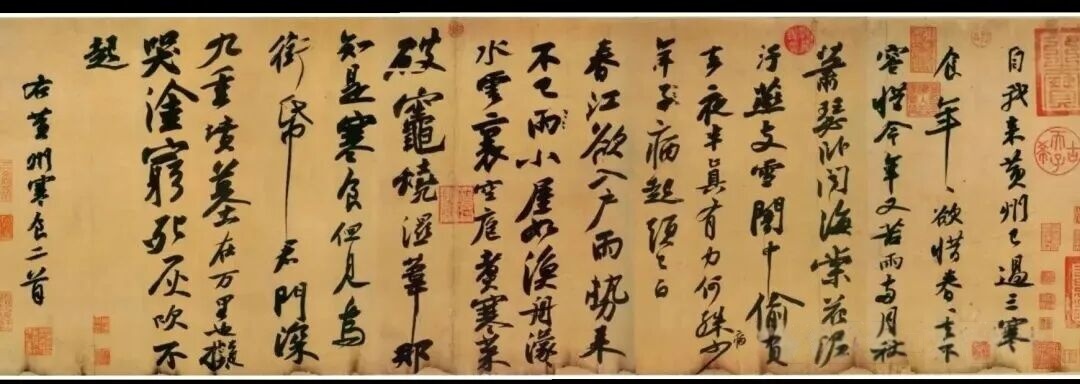 自我来黄州已過三寒
食年〻欲惜春〻去不
容惜今年又苦雨两月秋
蕭瑟卧聞海棠花泥
汙燕支雪闇中偷負
去夜半真有力何殊少病
年子病起頭已白
春江欲入户雨勢来
不已雨小屋如漁舟濛〻
水雲裏空庖煮寒菜
破竈燒濕葦那
知是寒食但見烏
銜帋君門深
九重墳墓在万里也擬
哭塗窮死灰吹不
起
右黄州寒食二首